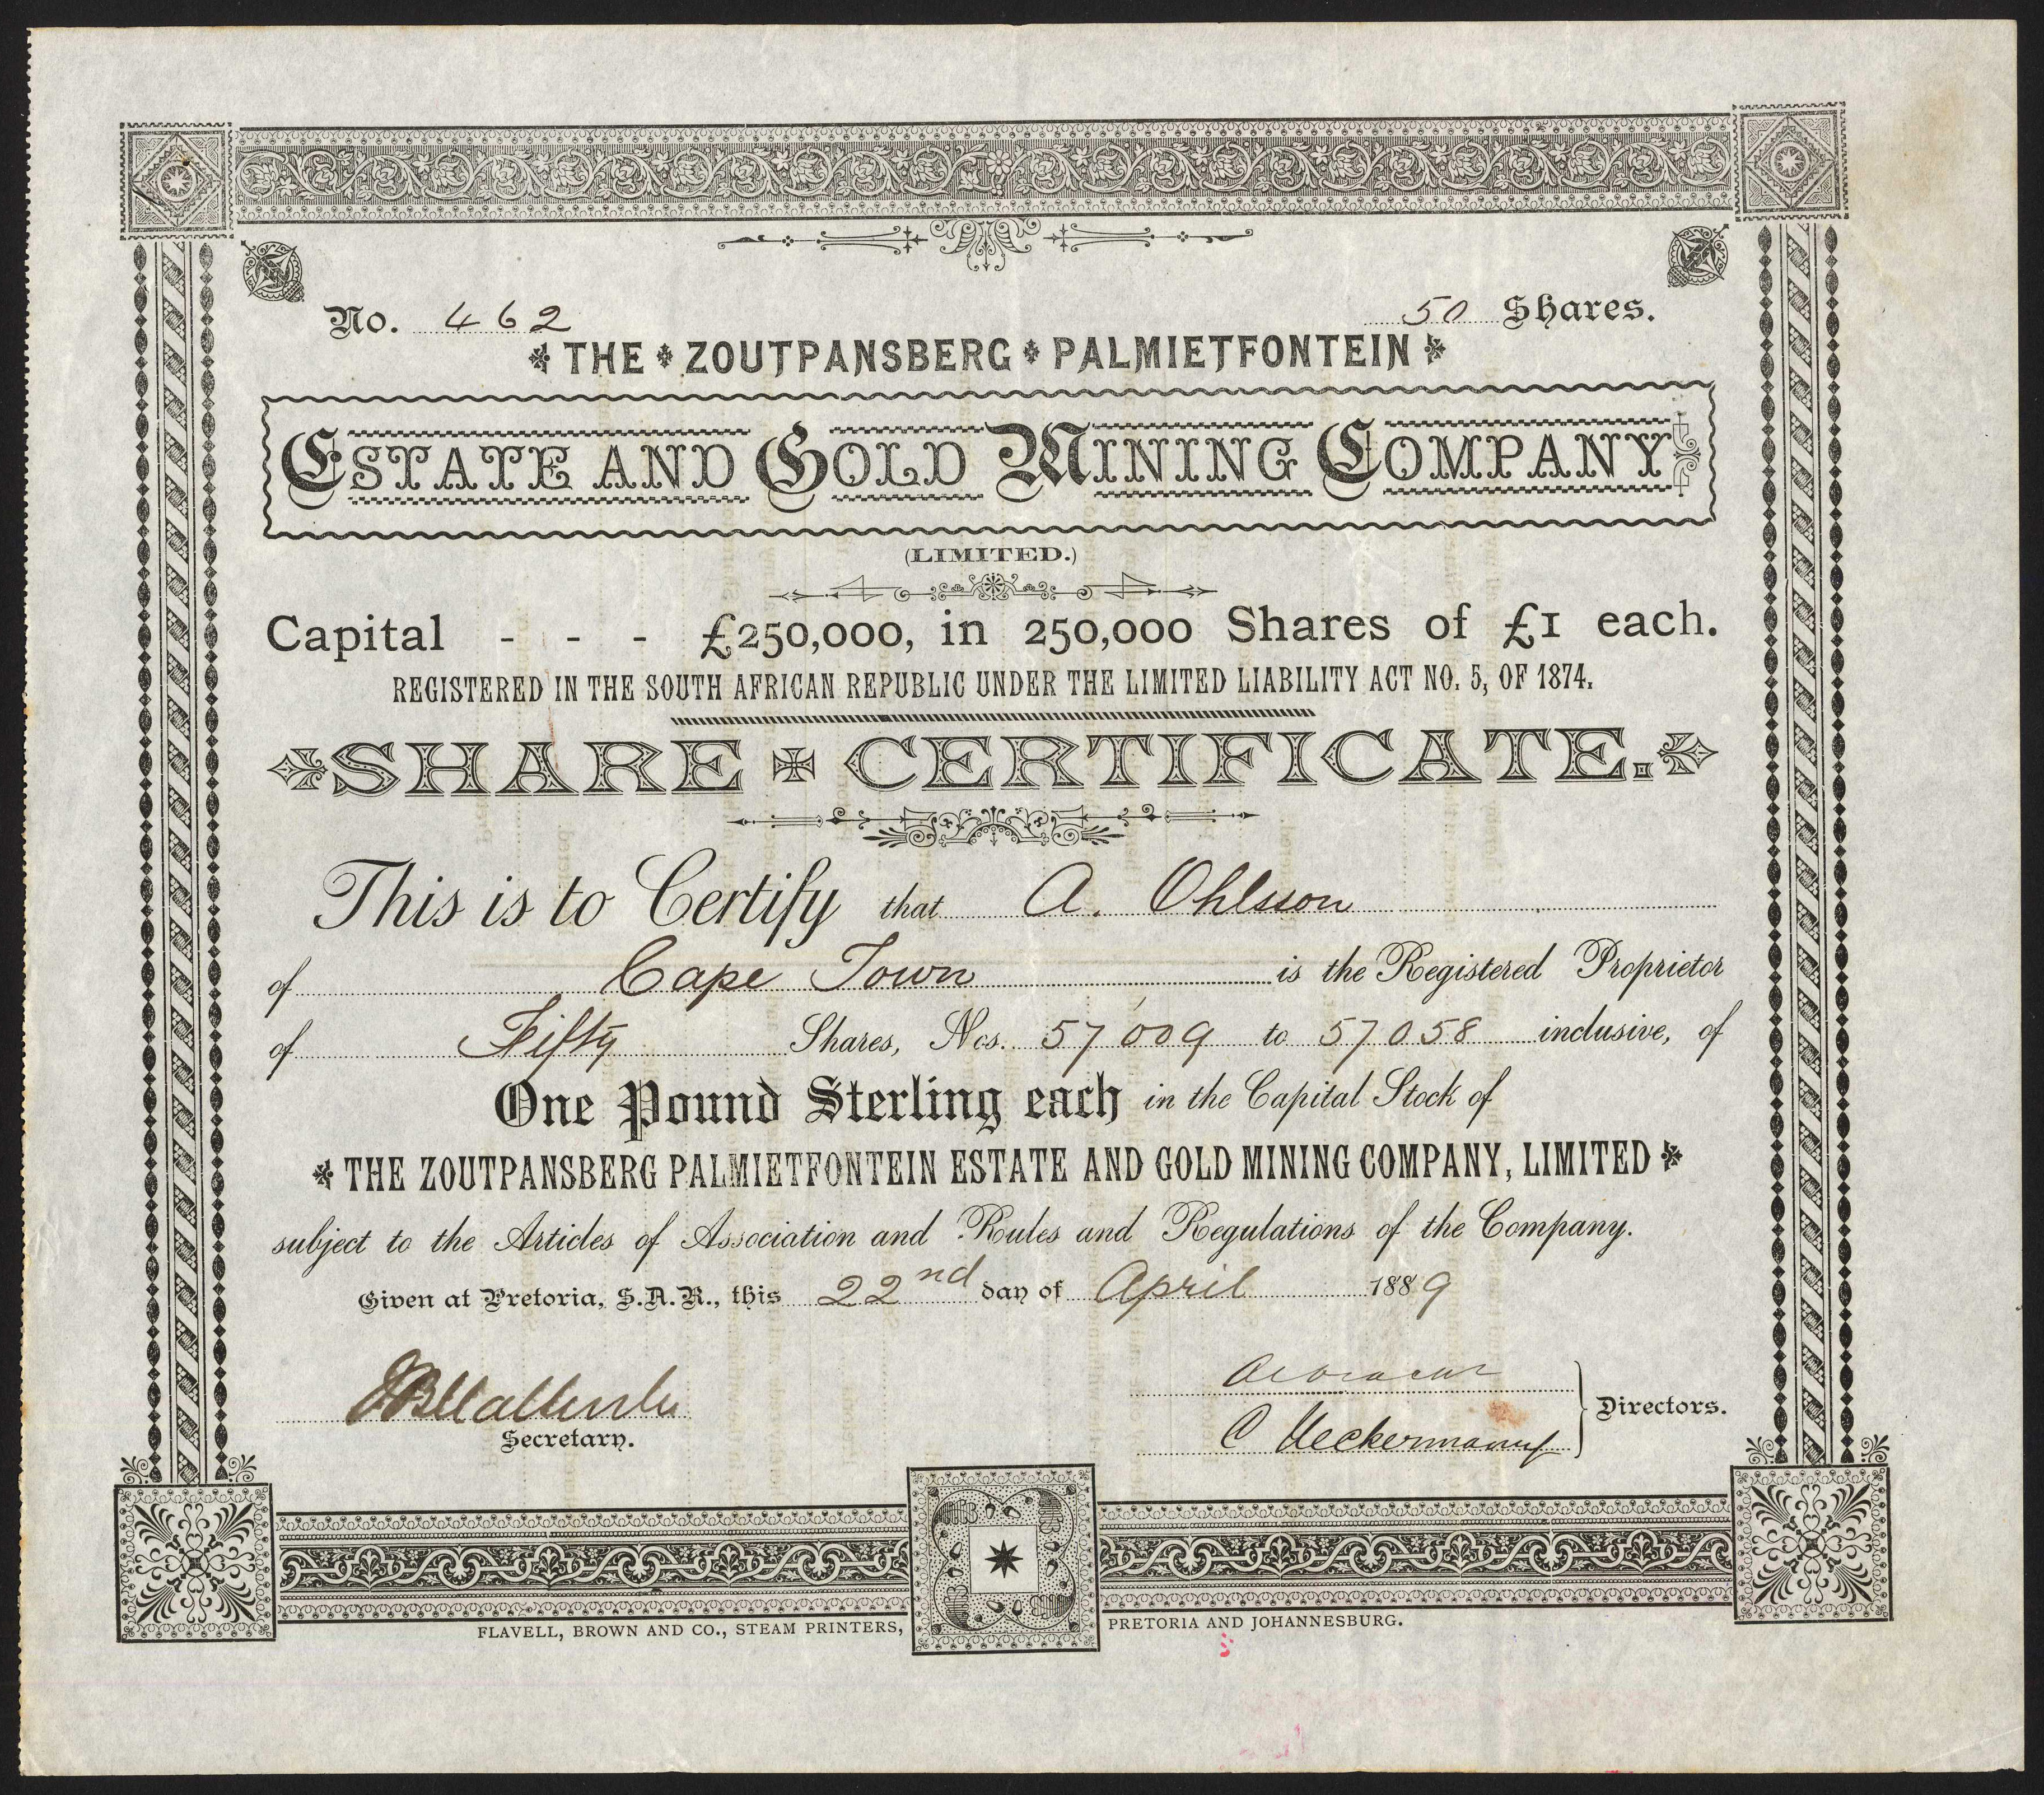 No. 462 50 Shares.
THE ZOUTPANSBERG PALMIETFONTEIN
ESTATE AND GOLD MINING COMPANY
(LIMITED.)
Capital - - - £250,000, in 250,000 Shares of £1 each.
REGISTERED IN THE SOUTH AFRICAN REPUBLIC UNDER THE LIMITED LIABILITY ACT NO. 5, OF 1874.
SHARE CERTIFICATE.
This is to Certify that A. Ohlsson
of Cape Town is the Registered Proprietor
of Fifty Shares, Nos. 57009 to 57058 inclusive, of
One Pound Sterling each in the Capital Stock of
THE ZOUTPANSBERG PALMIETFONTEIN ESTATE AND GOLD MINING COMPANY, LIMITED
subject to the Articles of Association and Rules and Regulations of the Company.
Given at Pretoria, S.A.R., this 22nd day of April 1889
Secretary.
C Ueckermann
Directors.
FLAVELL, BROWN AND CO., STEAM PRINTERS, PRETORIA AND JOHANNESBURG.